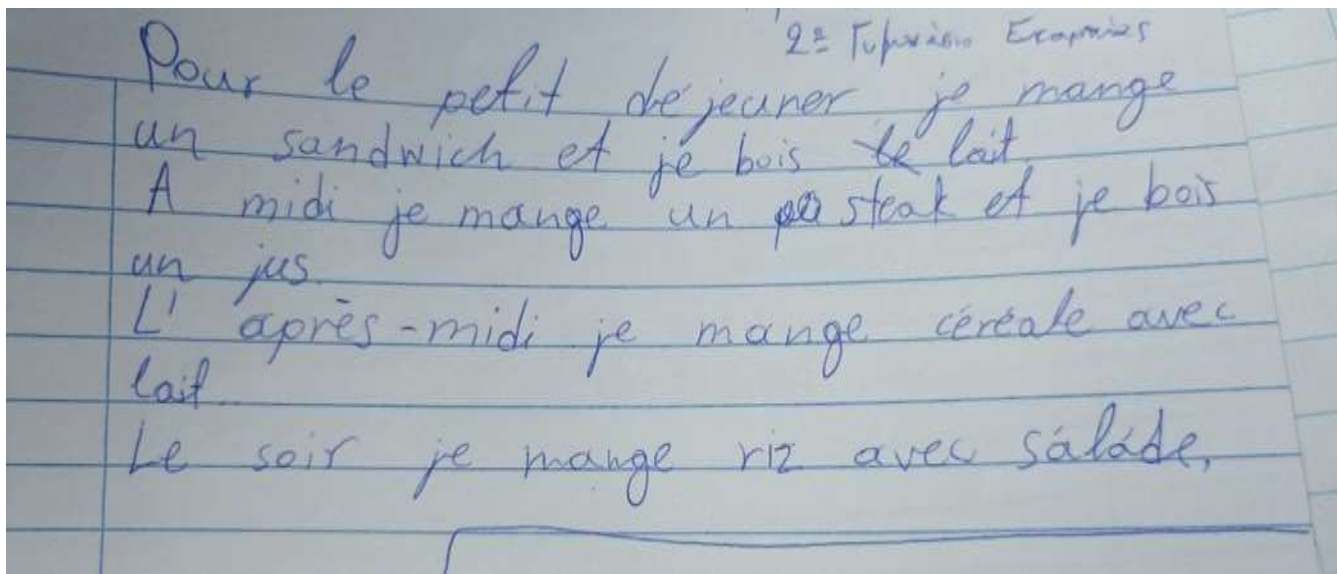 2ο Γυμνάσιο
Pour le petit déjeuner je mange
un sandwich et je bois le lait.
A midi je mange un steak et je bois
un jus.
L'après-midi je mange céréale avec
lait.
Le soir je mange riz avec sáláde,